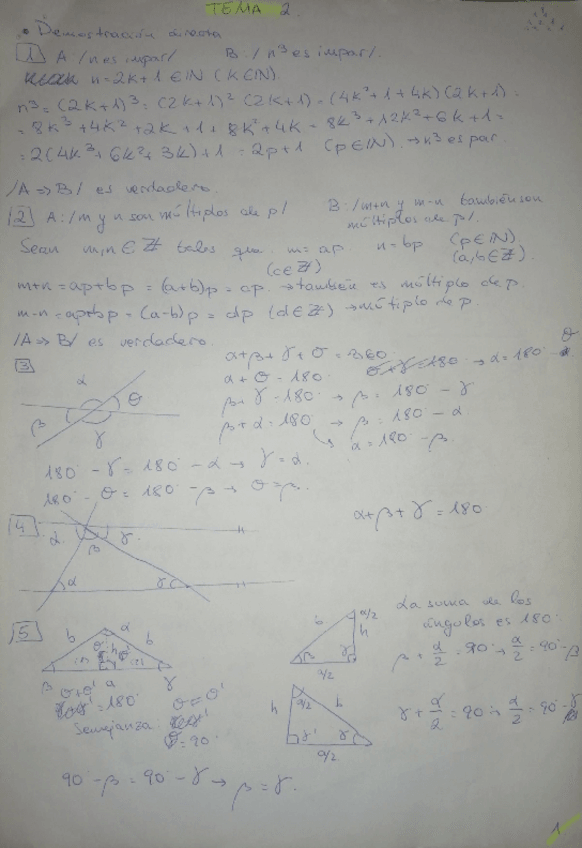 TEMA 2.
• Demostración directa
1 A: /n es impar/. B: /n³ es impar/.
n = 2k+1 ∈ ℕ (k∈ℕ)
n³ = (2k+1)³ = (2k+1)² (2k+1) = (4k²+1+4k) (2k+1) =
= 8k³ + 4k² + 2k + 1 + 8k² + 4k = 8k³ + 12k² + 6k + 1 =
= 2(4k³ + 6k² + 3k) + 1 = 2p+1 (p∈ℕ). → n³ es par.
/A ⇒ B/ es verdadero.
2 A: /m y n son múltiplos de p/ B: /m+n y m-n también son
múltiplos de p/.
Sean m,n ∈ ℤ tales que m = ap n = bp (p∈ℕ)
(a,b∈ℤ).
(c∈ℤ)
m+n = ap+bp = (a+b)p = cp. → también es múltiplo de p.
m-n = ap+bp = (a-b)p = dp (d∈ℤ) → múltiplo de p.
/A ⇒ B/ es verdadero.
3
α θ β γ
α+β+γ+θ = 360°
α + θ = 180° → α = 180° - θ
β + γ = 180° → β = 180° - γ
β + α = 180° → β = 180° - α
↳ α = 180° - β.
180° - γ = 180° - α → γ = α.
180° - θ = 180° - β → θ = β.
4
α β γ
α γ
α+β+γ = 180°
5
b α b
β a γ
θ+θ' = 180°
Semejanza
θ = θ'
θ = 90°
b α/2 h β a/2
h α/2 b γ a/2
La suma de los
ángulos es 180°
β + α/2 = 90° → α/2 = 90° - β
γ + α/2 = 90° → α/2 = 90° - γ
90° - β = 90° - γ → β = γ.
1